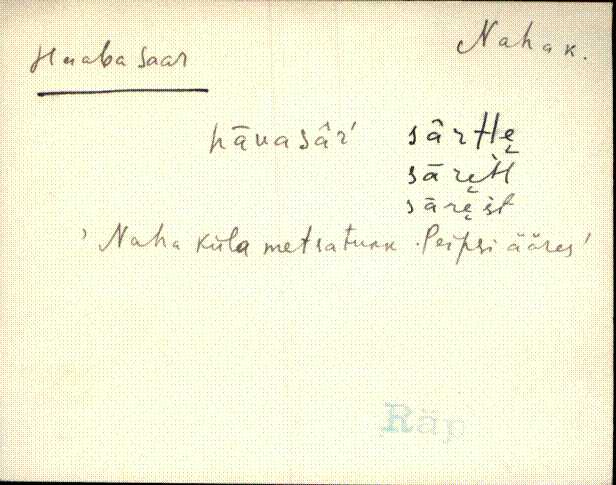 Haabasaar
Naha k.
hāvasâr' sârHe̮
sāre̮H
sāre̮st
'Naha küla metsatukk Peipsi ääres'
Räp